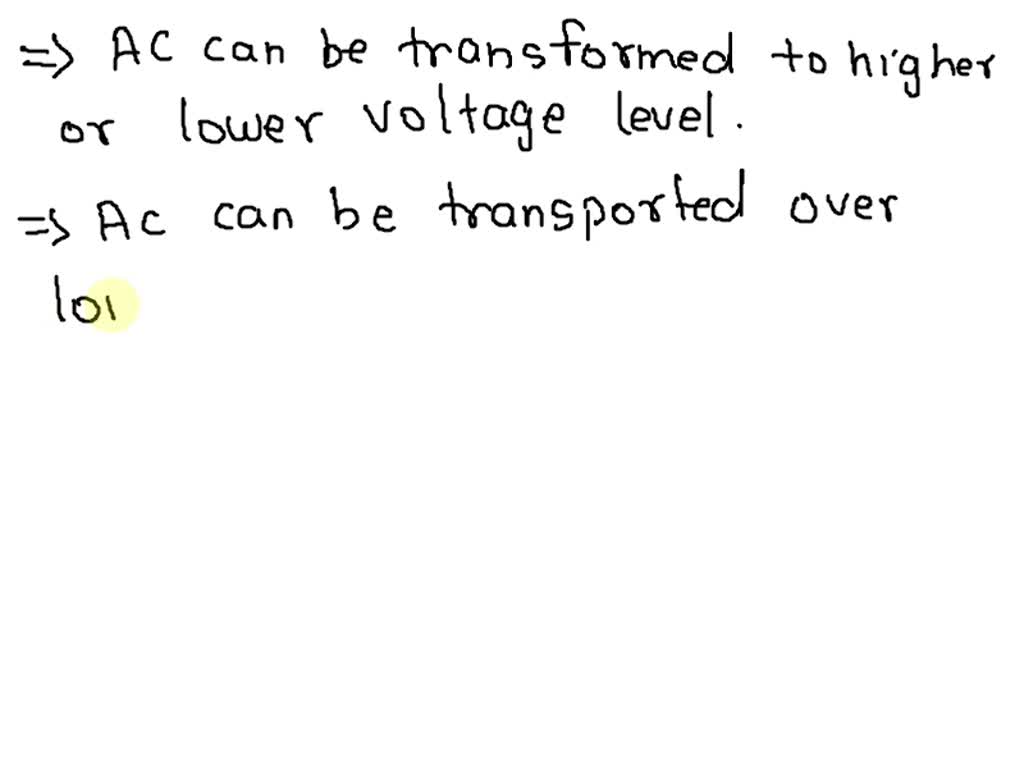 => AC can be transformed to higher
or lower voltage level.
=> Ac can be transported over